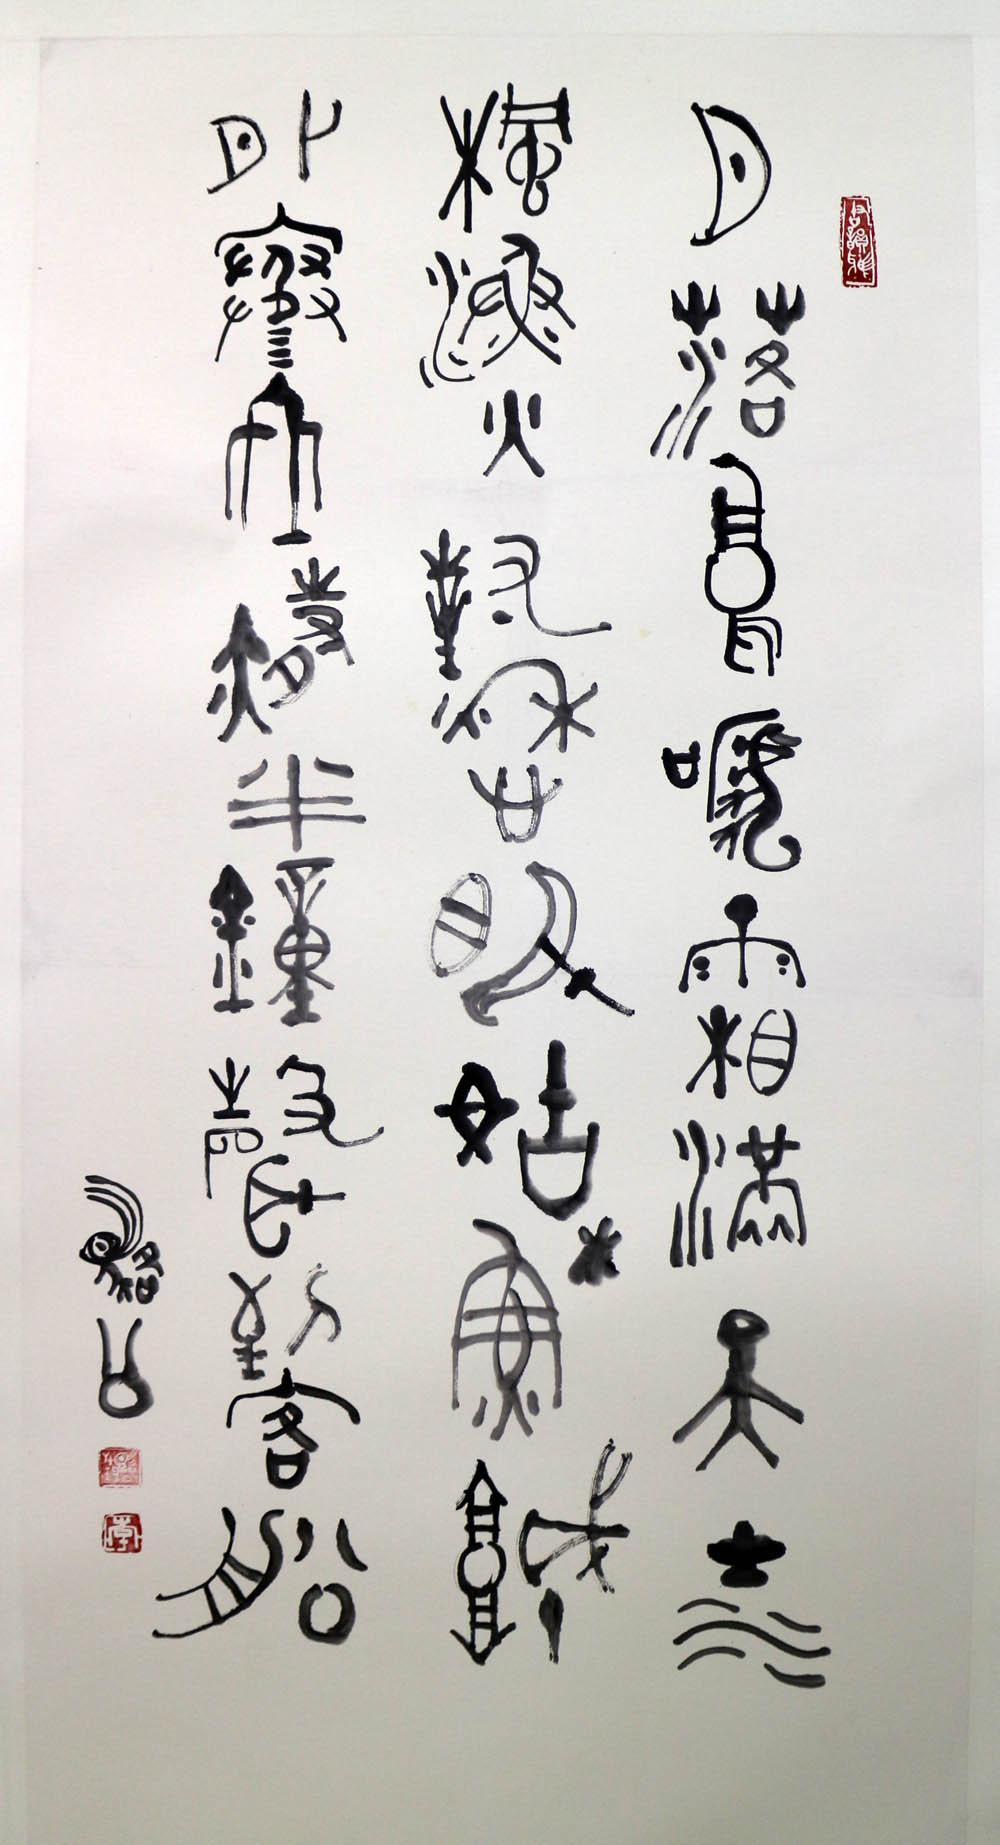 月落烏啼霜滿天江
楓漁火對愁眠姑蘇城
外寒山寺夜半鐘聲到客船